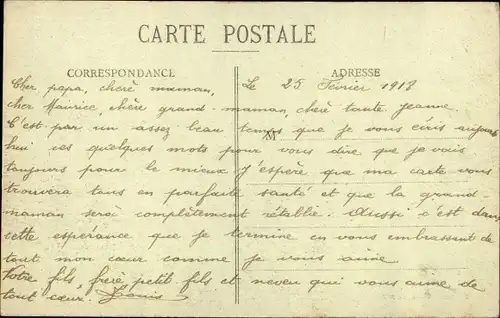 CARTE POSTALE
CORRESPONDANCE
ADRESSE
Le 25 Février 1918
Cher papa, chère maman,
cher Maurice, chère grand-maman, chère tante Jeanne
C'est par un assez beau temps que je vous écris aujourd'
hui ces quelques mots pour vous dire que je vais
toujours pour le mieux J'espère que ma carte vous
trouvera tous en parfaite santé et que la grand-
maman sera complètement rétablie. Aussi c'est dans
cette espérance que je termine en vous embrassant de
tout mon cœur comme je vous aime
Votre fils, frère petit fils et neveu qui vous aime de
tout cœur. Louis